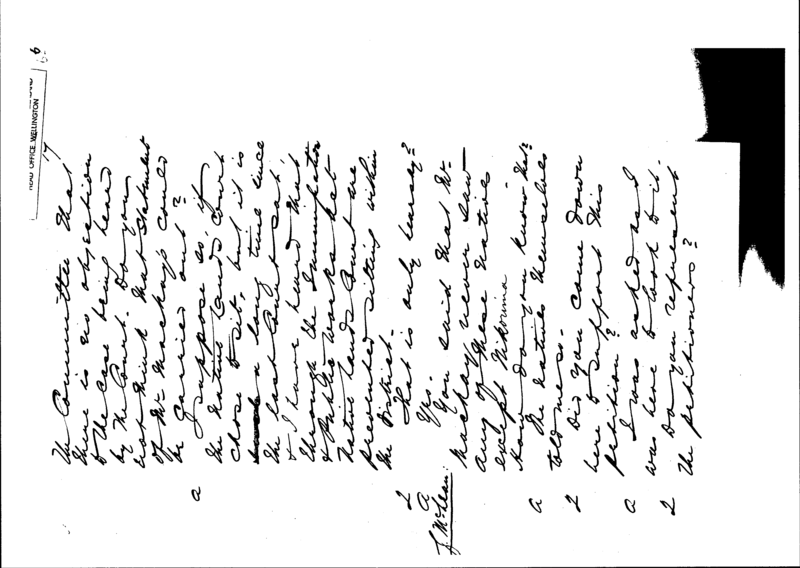 HEAD OFFICE WELLINGTON
17
The Committee that
there is no objection
to the case being heard
by the Court. Do you
not think that statement
of Mr Mackays could
be carried out?
a I suppose so, if
the Native Lands Court
chose to sit, but it is
a long time since
the last Court sat
& I have heard that
through the Immigration
& Public works that
Native Lands Court are
prevented sitting within
the District.
Q That is only hearsay?
a Yes.
J. McLean: You said that Mr
Mackay never saw
any of these natives
except Wikorima
How do you know that?
a The natives themselves
told me so.
Q Did you come down
here to support this
petition?
a I was asked as I
was here to look to it.
Q Do you represent
the petitioners?